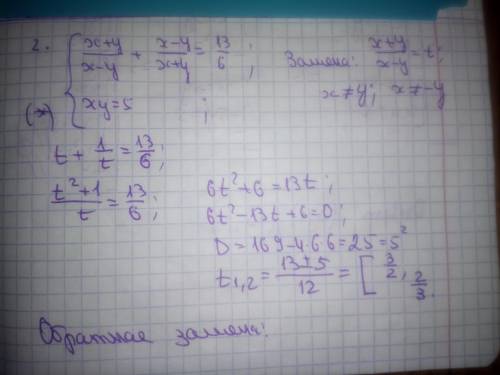 2. { (x+y)/(x-y) + (x-y)/(x+y) = 13/6 ; Замена: (x+y)/(x-y) = t;
(*) { xy = 5 ; x ≠ y; x ≠ -y
t + 1/t = 13/6;
(t²+1)/t = 13/6; 6t²+6 = 13t;
6t²-13t+6=0;
D = 169-4·6·6=25=5²
t₁,₂ = (13±5)/12 = [ 3/2, 2/3.
Обратная замена: